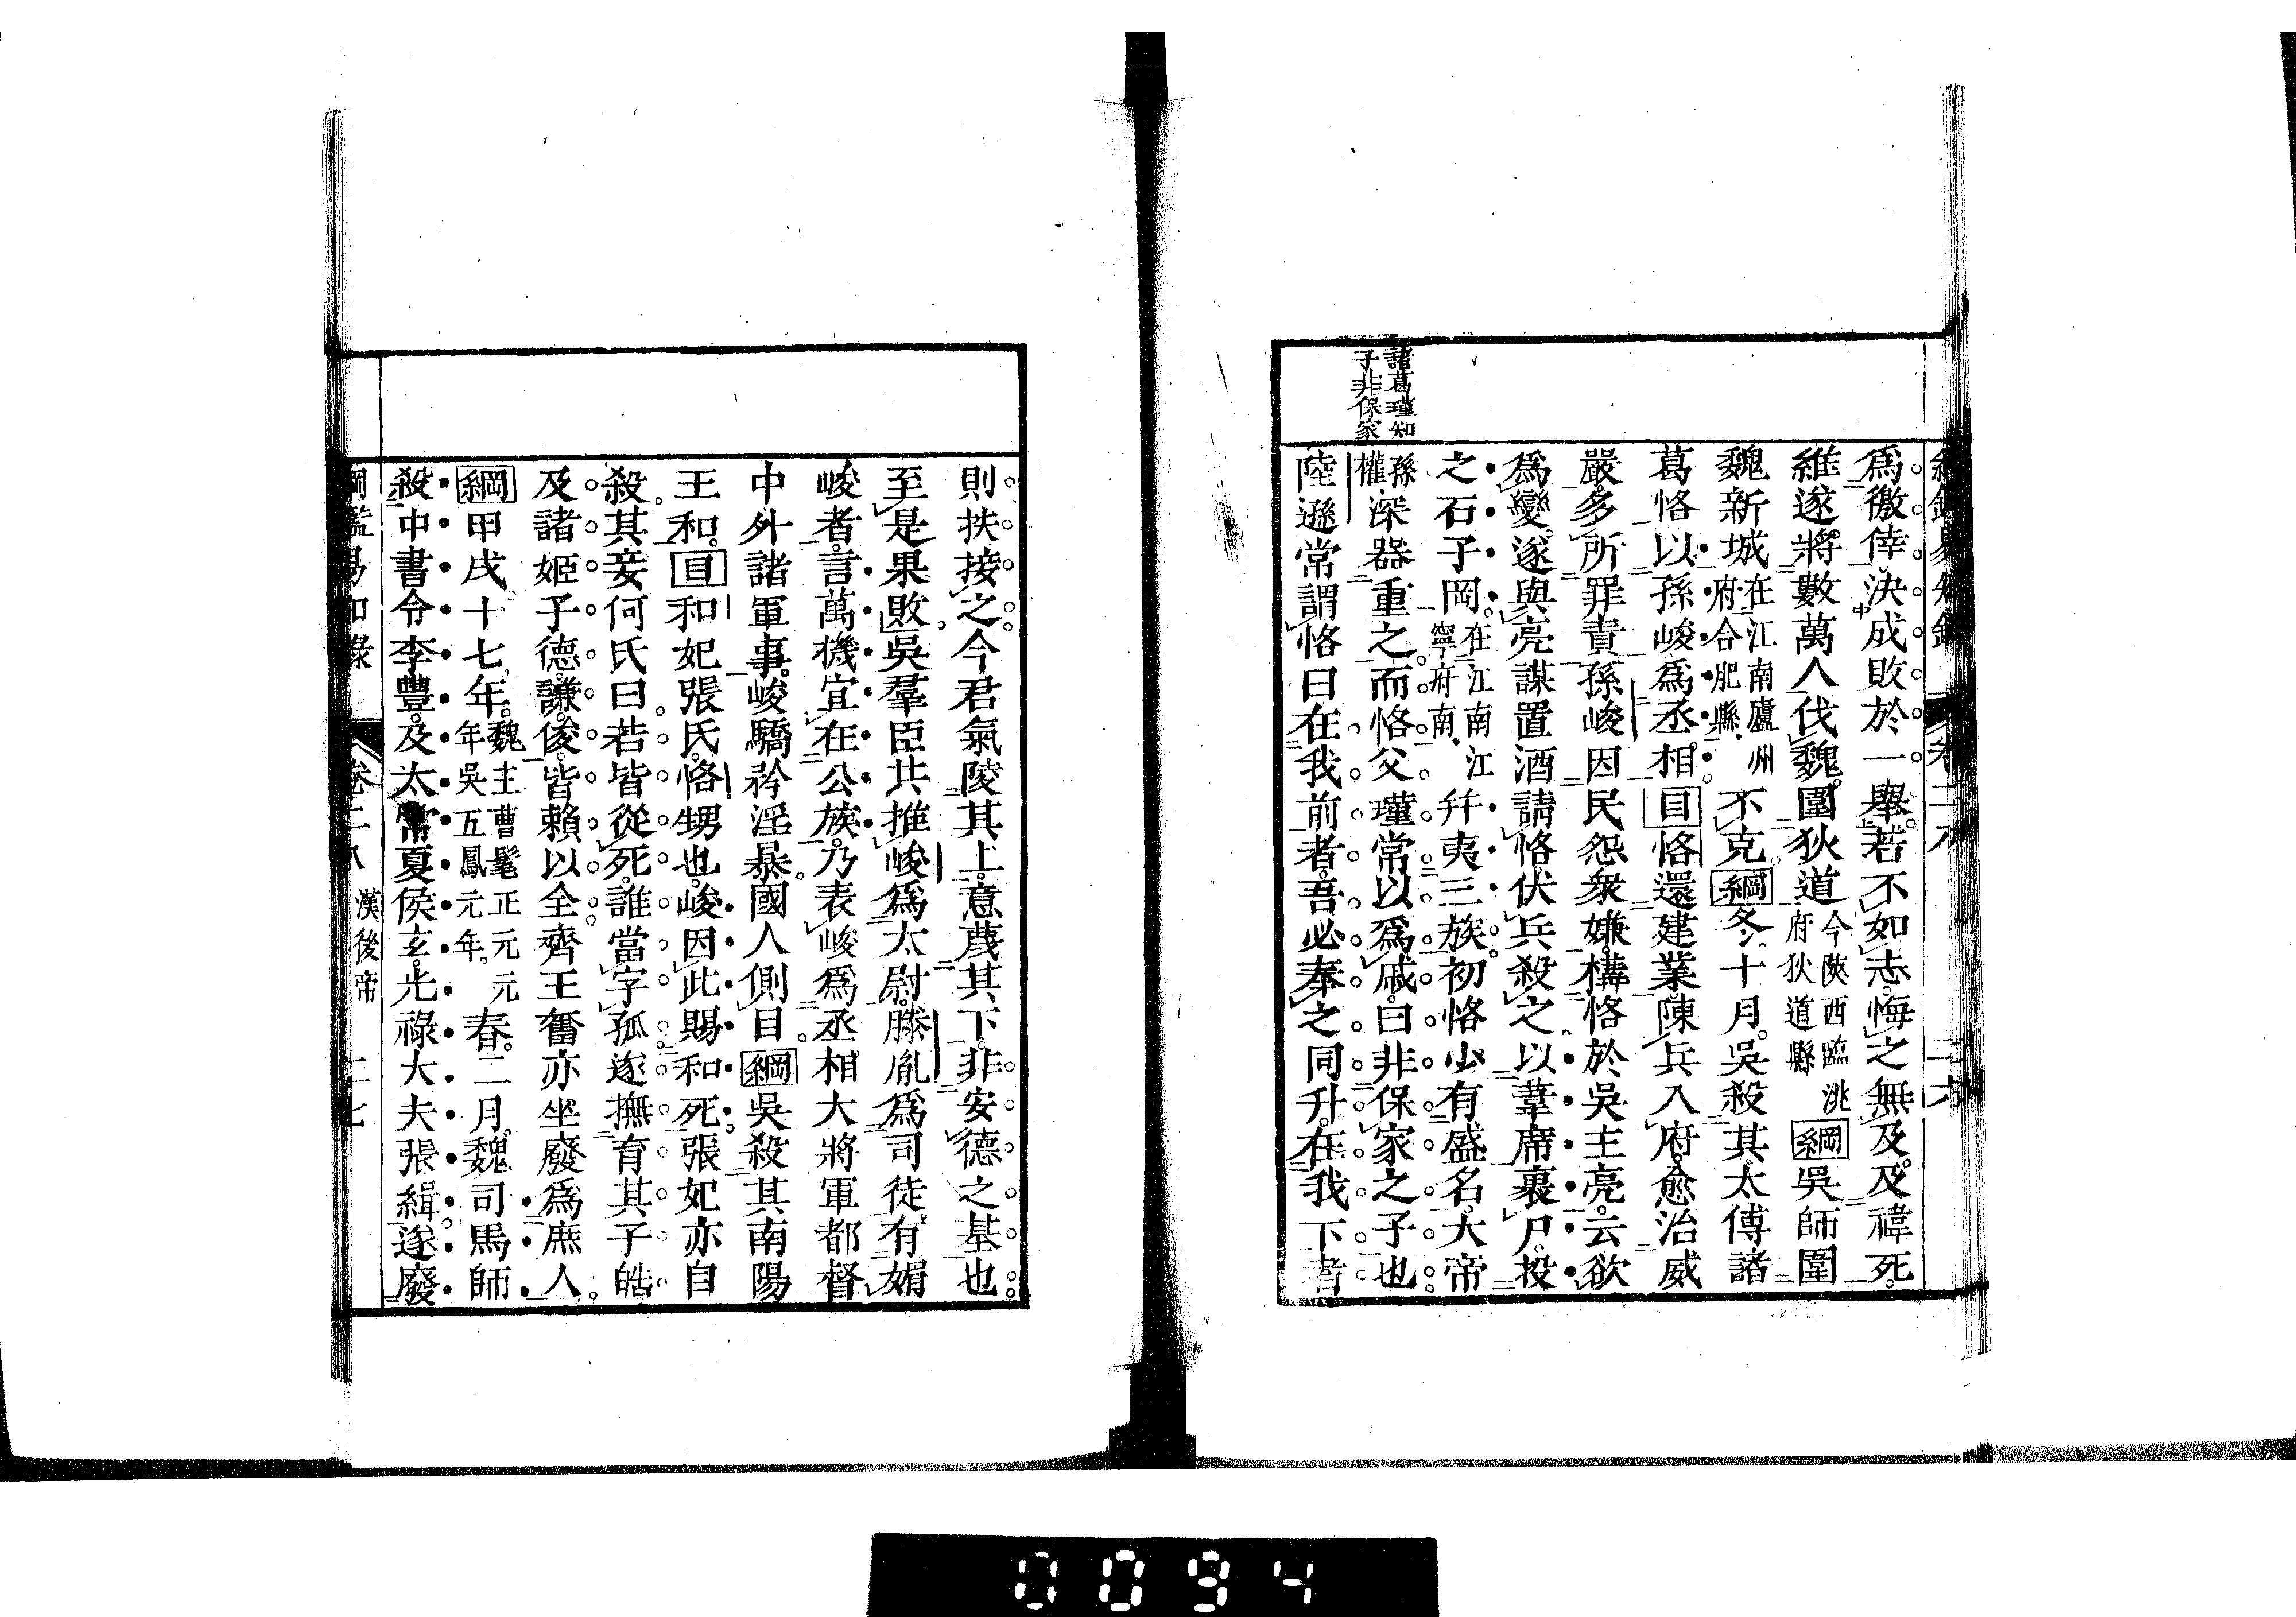 諸葛瑾知
子非保家
爲徼倖決成敗於一舉若不如志悔之無及及禕死
維遂將數萬人伐魏圍狄道今陝西臨洮府狄道縣綱吳師圍
魏新城在江南廬州府合肥縣不克綱冬十月吳殺其太傅諸
葛恪以孫峻爲丞相目恪還建業陳兵入府愈治威
嚴多所罪責孫峻因民怨衆嫌構恪於吳主亮云欲
爲變遂與亮謀置酒請恪伏兵殺之以葦席裹尸投
之石子岡在江南江寧府南幷夷三族初恪少有盛名大帝
孫權深器重之而恪父瑾常以爲戚曰非保家之子也
陸遜常謂恪曰在我前者吾必奉之同升在我下者
則扶接之今君氣陵其上意蔑其下非安德之基也
至是果敗吳羣臣共推峻爲太尉滕胤爲司徒有媚
峻者言萬機宜在公族乃表峻爲丞相大將軍都督
中外諸軍事峻驕矜淫暴國人側目綱吳殺其南陽
王和目和妃張氏恪甥也峻因此賜和死張妃亦自
殺其妾何氏曰若皆從死誰當字孤遂撫育其子皓
及諸姬子德謙俊皆賴以全齊王奮亦坐廢爲庶人
綱甲戌十七年魏主曹髦正元元年吳五鳳元年春二月魏司馬師
殺中書令李豐及太常夏侯玄光祿大夫張緝遂廢
綱鑑易知錄 卷二十八 漢後帝 二七